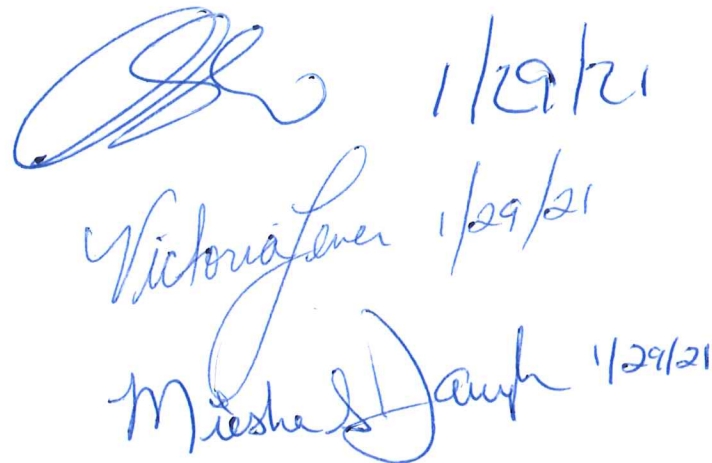 1/29/21
Victoria Lener 1/29/21
Miesha S 1/29/21